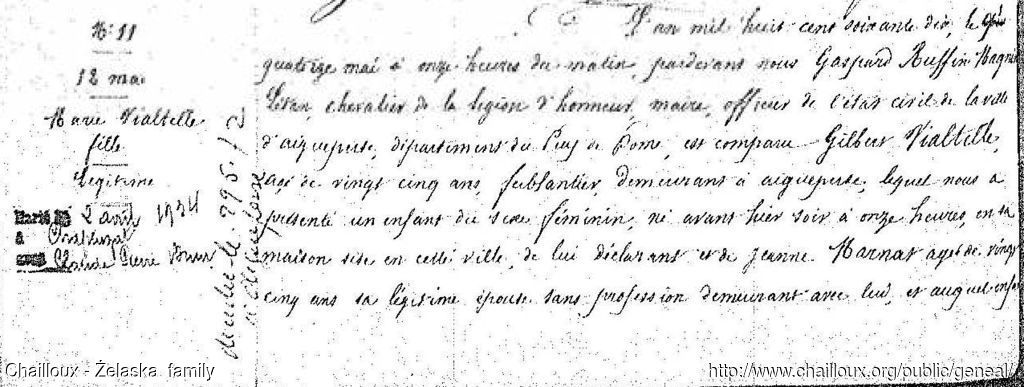 N: 11
12 mai
Marie Vialtelle
fille
Legitime
Marié
2 avril 1934
à
avec Pierre
L'an mil huit cent soixante dix, le
quatorze mai à onze heures du matin, pardevant nous Gaspard Ruffin
chevalier de la légion d'honneur, maire, officier de l'état civil de la ville
d'aigueperse, département du Puy de Dome, est comparu Gilbert Vialtelle,
agé de vingt cinq ans, ferblantier demeurant à aigueperse, lequel nous a
présenté un enfant du sexe féminin, né avant hier soir à onze heures, en sa
maison sise en cette ville, de lui déclarant et de jeanne Marnat agée de vingt
cinq ans sa légitime épouse sans profession demeurant avec lui, et auquel enfant
Chailloux - Żelaska family
http://www.chailloux.org/public/geneal/